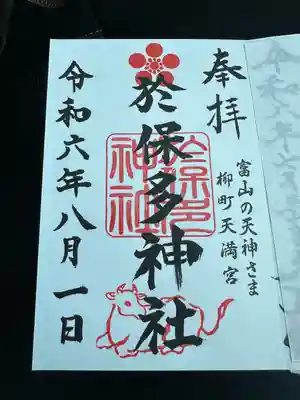 奉拝
富山の天神さま
柳町天満宮
於保多神社
令和六年八月一日